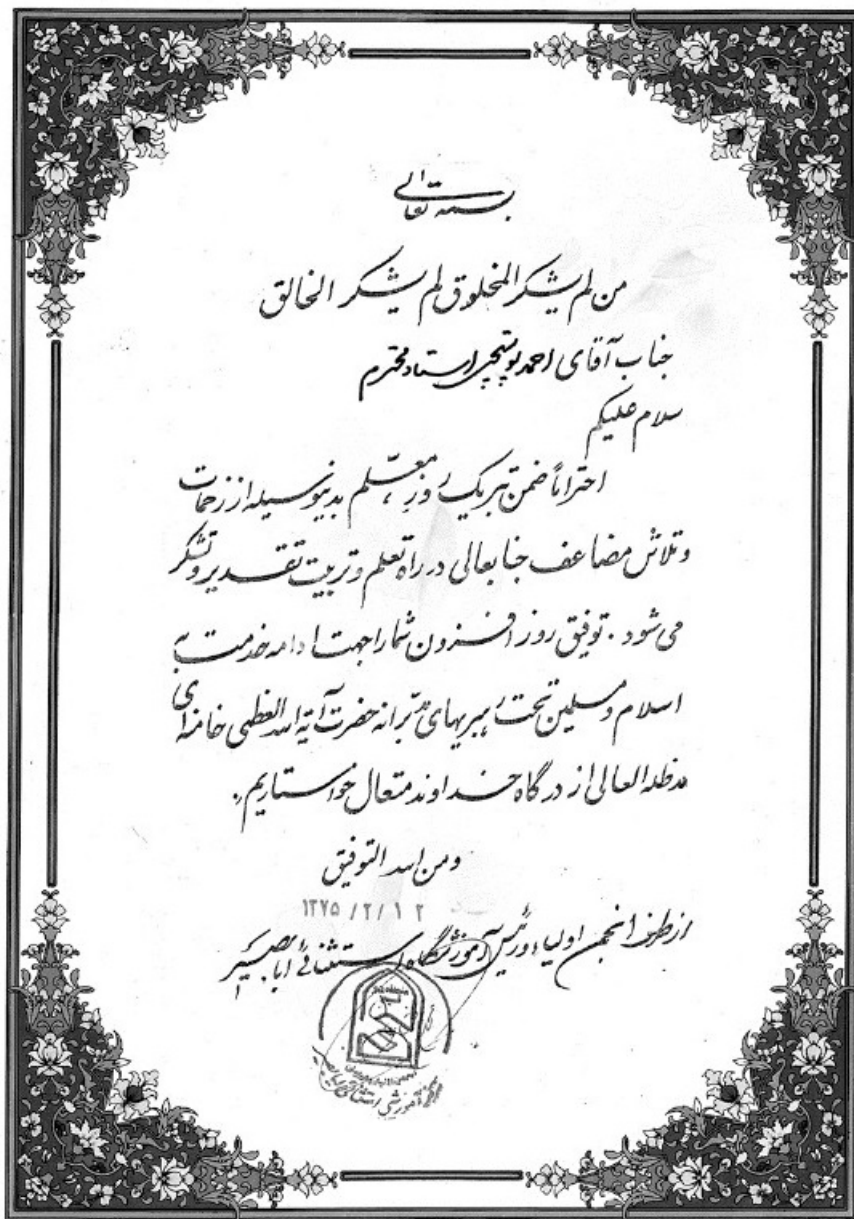 بسمه تعالی
من لم یشکر المخلوق لم یشکر الخالق
جناب آقای احمد پوستچی استاد محترم
سلام علیکم
احتراماً ضمن تبریک روز معلّم بدینوسیله از زحمات
و تلاش مضاعف جنابعالی در راه تعلم و تربیت تقدیر و تشکر
می شود. توفیق روز افزون شما را جهت ادامه خدمت به
اسلام و مسلمین تحت رهبریهای مدبّرانه حضرت آیة الله العظمی خامنه ای
مدظله العالی از درگاه خداوند متعال خواستاریم.
و من الله التوفیق
۱۳۷۵/۲/۱۲
از طرف انجمن اولیاء و رئیس آموزشگاه استثنائی ابابصیر